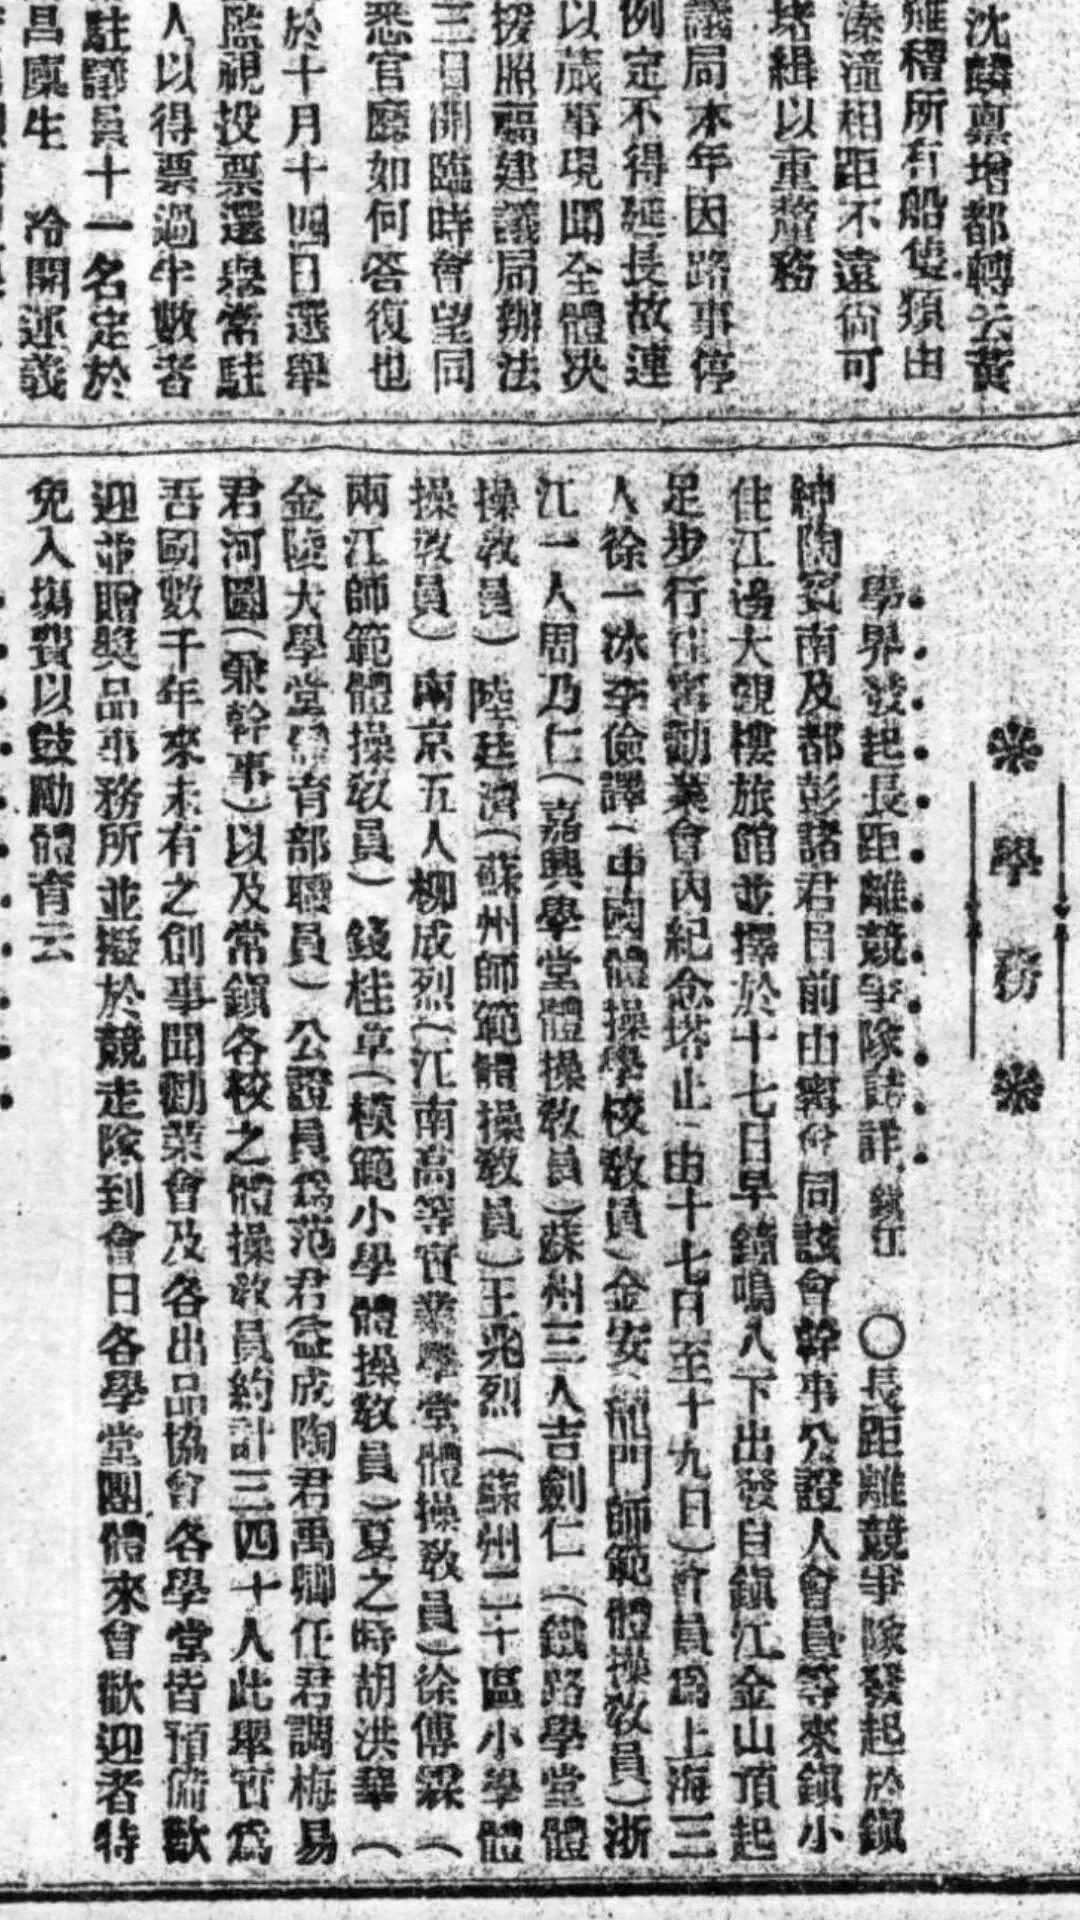 沈麟禀增都轉云黃
艙所有船隻類由
溱潼相距不遠尚可
堵緝以重鹺務
議局本年因路事停
例定不得延長故連
以蕆事現聞全體决
援照福建議局辦法
三日開臨時會望同
悉官廳如何答復也
於十月十四日選舉
監視投票選舉常駐
人以得票過半數者
駐議員十一名定於
昌廩生　冷開運議
學務
學界發起長距離競爭隊詳誌　鎮江　〇長距離競爭隊發起於鎮
紳陶安南及都彭諸君日前由寗會同該會幹事公證人會員等來鎮小
住江邊大觀樓旅館並擇於十七日早鐘鳴八下出發自鎮江金山頂起
足步行往寗勸業會內紀念塔止（由十七日至十九日）會員爲上海三
人徐一冰李儉譯（中國體操學校敎員）金安（龍門師範體操敎員）浙
江一人周乃仁（嘉興學堂體操敎員）蘇州三人吉劍仁（鐵路學堂體
操敎員）陸廷濟（蘇州師範體操敎員）王兆烈（蘇州二十區小學體
操敎員）南京五人柳成烈（江南高等實業學堂體操敎員）徐傅霖（
兩江師範體操敎員）錢桂章（模範小學體操敎員）夏之時胡洪華（
金陵大學堂體育部職員）公證員爲范君益成陶君禹卿任君調梅易
君河圖（兼幹事）以及常鎭各校之體操敎員約計三四十人此舉實爲
吾國數千年來未有之創事聞勸業會及各出品協會各學堂皆預備歡
迎並贈獎品事務所並擬於競走隊到會日各學堂團體來會歡迎者特
免入塲費以鼓勵體育云